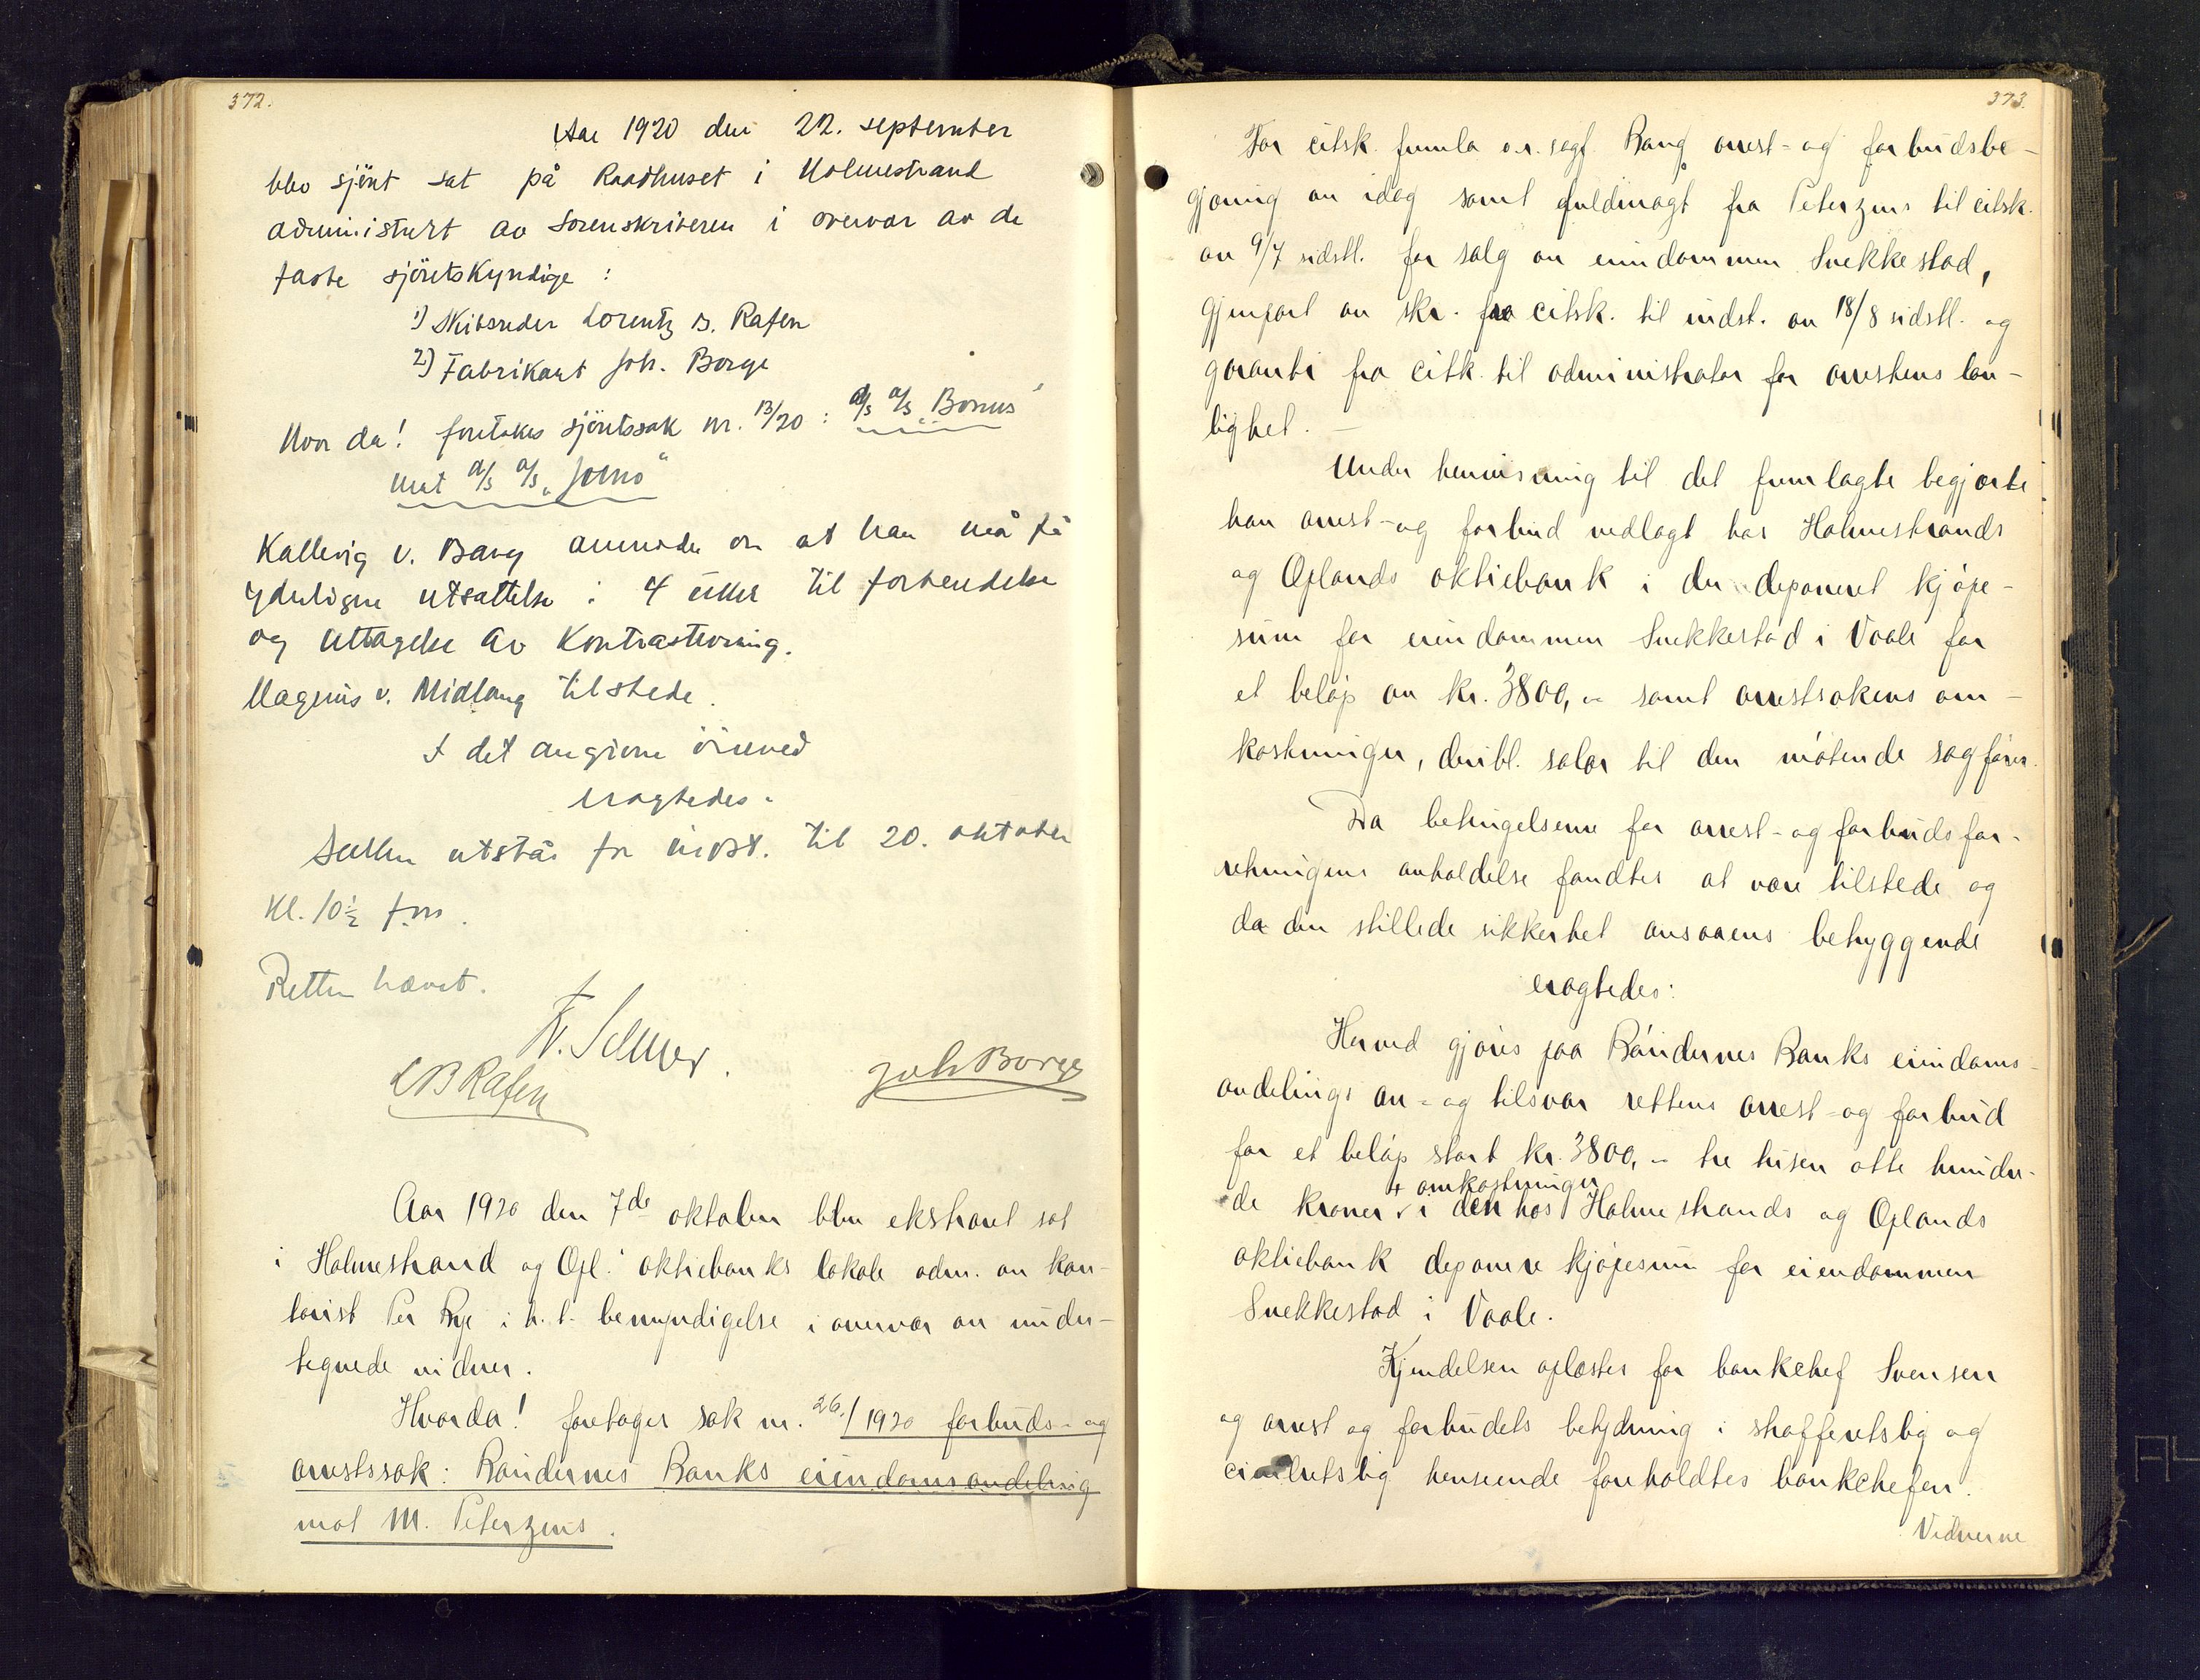 372.
Aar 1920 den 22. september
blev sjøret sat på Raadhuset i Holmestrand
administrert av Sorenskriveren i overvær av de
faste sjøretskyndige :
1) Skibsreder Lorentz B. Rafen
2) Fabrikant Joh. Borge
Hvor da! foretokes sjøretssak nr. 13/20 : a/s a/s „Bonus"
mot a/s a/s „Jomo"
Kallevig v. Bang anmodet om at han må få
yderligere utsættelse i 4 uker til forkendelse
og uttagelse av Kontrastevning.
Magnus v. Midlang tilstede.
I det angivne öiemed
eragtedes:
Sakken utstår fra indst. til 20. oktober
Kl. 10½ fm.
Retten hævet.
LB Rafen
Joh Borge
Aar 1920 den 7de oktober blev ekstraret sat
i Holmestrand og Opl. aktiebanks lokale adm. av kon-
torist Per Rye i h. t. bemyndigelse i overvær av under-
tegnede vidner.
Hvorda! foretoges sak nr. 26/1920 forbuds- og
arrestssak: Bøndernes Banks eiendomsavdeling
mot M. Peterzens.
373.
For citsk. fremla o.r.sagf. Bang arrest- og forbudsbe-
gjæring av idag samt fuldmagt fra Peterzens til citsk.
av 9/7 sidstl. for salg av eiendommen Snekkestad,
gjenpart av skr. fra citsk. til indst. av 18/8 sidstl. og
garanti fra citk. til administrator for arrestens lov-
lighet. —
Under henvisning til det fremlagte begjærte
han arrest- og forbud nedlagt hos Holmestrands
og Oplands aktiebank i den deponeret kjøpe-
sum for eiendommen Snekkestad i Vaale for
et beløp av kr. 3800,– samt arrestsakens om-
kostninger, deribl. salær til den møtende sagfører.
Da betingelserne for arrest- og forbudsfor-
retningens avholdelse fandtes at være tilstede og
da den stillede sikkerhet ansaaens betryggende
eragtedes:
Herved gjøres paa Bøndernes Banks eiendoms-
avdelings an- og tilsvar rettens arrest- og forbud
for et beløp stort kr. 3800,– tre tusen otte hundre-
+ omkostninger
de kroner i den hos Holmestrands og Oplands
aktiebank deponere kjøpesum for eiendommen
Snekkestad i Vaale.
Kjendelsen oplæstes for bankchef Svensen
og arrest og forbudets betydning i strafferetslig og
civilretslig henseende foreholdtes bankchefen.
Vidnerne